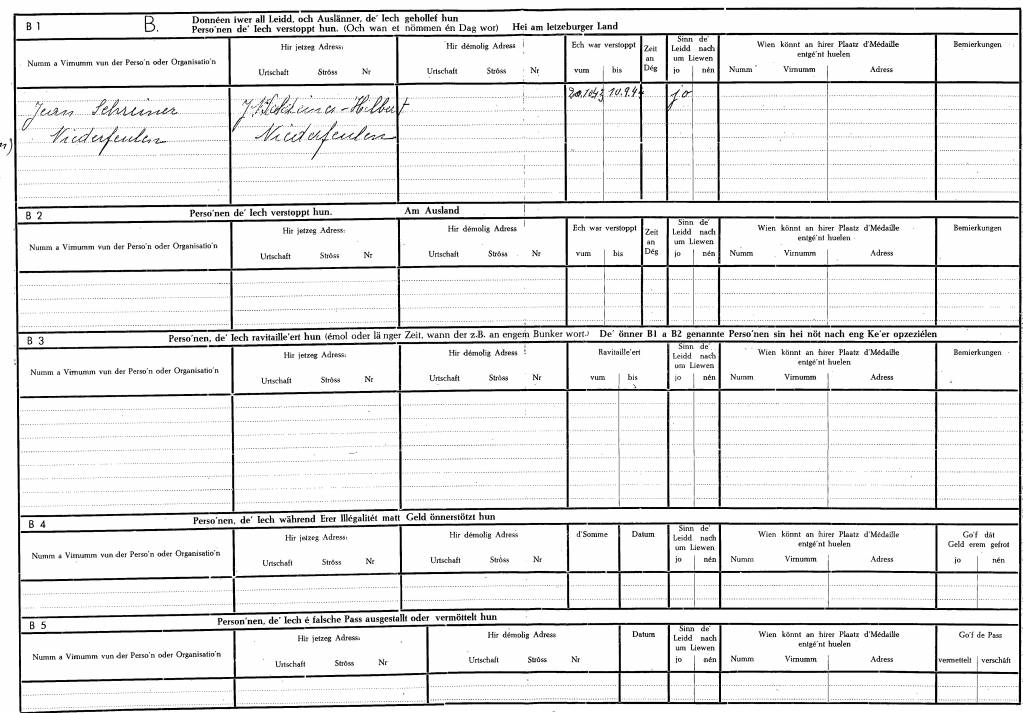 B 1 B. Donnéen iwer all Leidd, och Auslänner, de' Iech gehollef hun
Perso'nen de' Iech verstoppt hun. (Och wan et nömmen én Dag wor) Hei am letzeburger Land
Numm a Virnumm vun der Perso'n oder Organisatio'n
Hir jetzeg Adress:
Urtschaft Ströss Nr
Hir démolig Adress
Urtschaft Ströss Nr
Ech war verstoppt
vum bis
Zeit
an
Dég
Sinn de'
Leidd nach
um Liewen
jo nén
Wien könnt an hirer Plaatz d'Médaille
entgé'nt huelen
Numm Virnumm Adress
Bemierkungen
Jean Schreiner
Niederfeulen
Niederfeulen
10.9.44
jo
B 2 Perso'nen de' Iech verstoppt hun. Am Ausland
Numm a Virnumm vun der Perso'n oder Organisatio'n
Hir jetzeg Adress:
Urtschaft Ströss Nr
Hir démolig Adress
Urtschaft Ströss Nr
Ech war verstoppt
vum bis
Zeit
an
Dég
Sinn de'
Leidd nach
um Liewen
jo nén
Wien könnt an hirer Plaatz d'Médaille
entgé'nt huelen
Numm Virnumm Adress
Bemierkungen
B 3 Perso'nen, de' Iech ravitaille'ert hun (émol oder länger Zeit, wann der z.B. an engem Bunker wort.) De' önner B1 a B2 genannte Perso'nen sin hei nöt nach eng Ke'er opzeziélen
Numm a Virnumm vun der Perso'n oder Organisatio'n
Hir jetzeg Adress:
Urtschaft Ströss Nr
Hir démolig Adress
Urtschaft Ströss Nr
Ravitaille'ert
vum bis
Sinn de'
Leidd nach
um Liewen
jo nén
Wien könnt an hirer Plaatz d'Médaille
entgé'nt huelen
Numm Virnumm Adress
Bemierkungen
B 4 Perso'nen, de' Iech während Erer Illégalitét matt Geld önnerstötzt hun
Numm a Virnumm vun der Perso'n oder Organisatio'n
Hir jetzeg Adress:
Urtschaft Ströss Nr
Hir démolig Adress
Urtschaft Ströss Nr
d'Somme
Datum
Sinn de'
Leidd nach
um Liewen
jo nén
Wien könnt an hirer Plaatz d'Médaille
entgé'nt huelen
Numm Virnumm Adress
Go'f dát
Geld erem gefrot
jo nén
B 5 Person'nen, de' Iech é falsche Pass ausgestallt oder vermöttelt hun
Numm a Virnumm vun der Perso'n oder Organisatio'n
Hir jetzeg Adress:
Urtschaft Ströss Nr
Hir démolig Adress
Urtschaft Ströss Nr
Datum
Sinn de'
Leidd nach
um Liewen
jo nén
Wien könnt an hirer Plaatz d'Médaille
entgé'nt huelen
Numm Virnumm Adress
Go'f de Pass
vermettelt verschäft